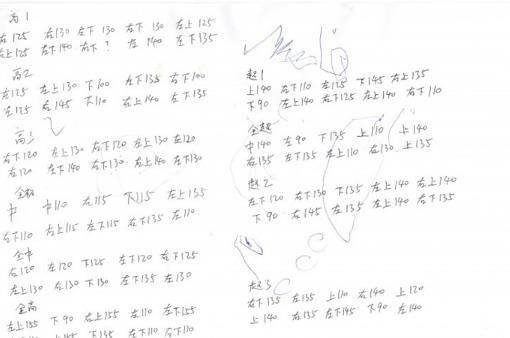 高1
右125 右130 左下130 右下130 左上125
右上125 左下140 右下? 左140 左下135
高2
左125 左上130 下100 左下135 右下100
左125 右145 下110 右上140 左下135
高三
右下120 左上130 右下120 左上130 左120
右120 左下140 右下130 左上140 左下130
全
中 中110 右115 下115 左上135
右下110 右上115 左下115 右下135 左110
全中
右120 左120 下125 左下120 右下125
左上130 右130 下130 左下135 左130
全高
左上155 下90 右上155 左110 左下155
135 左下110 右下110
超1
上140 右下110 左125 下145 右上135
下90 左上140 右下125 左上140 右下110
全超
中140 左90 下135 上110 上140
右135 左下135 左上110 右130 上135
超2
左下120 右下130 下135 左上140 右上140
下90 右145 左135 左上140 右下135
超3
右下135 左135 上110 右140 上120
上140 右135 左下145 下90 左140